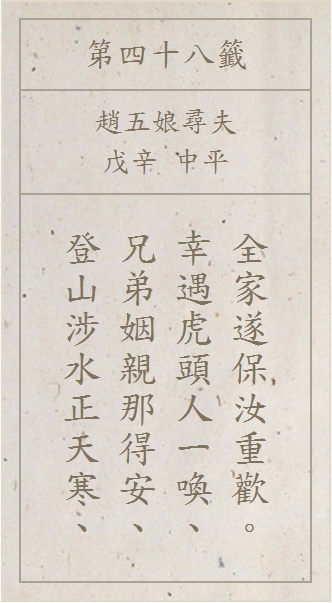 第四十八籤
趙五娘尋夫
戊辛 中平
登山涉水正天寒、
兄弟姻親那得安、
幸遇虎頭人一喚、
全家遂保汝重歡。